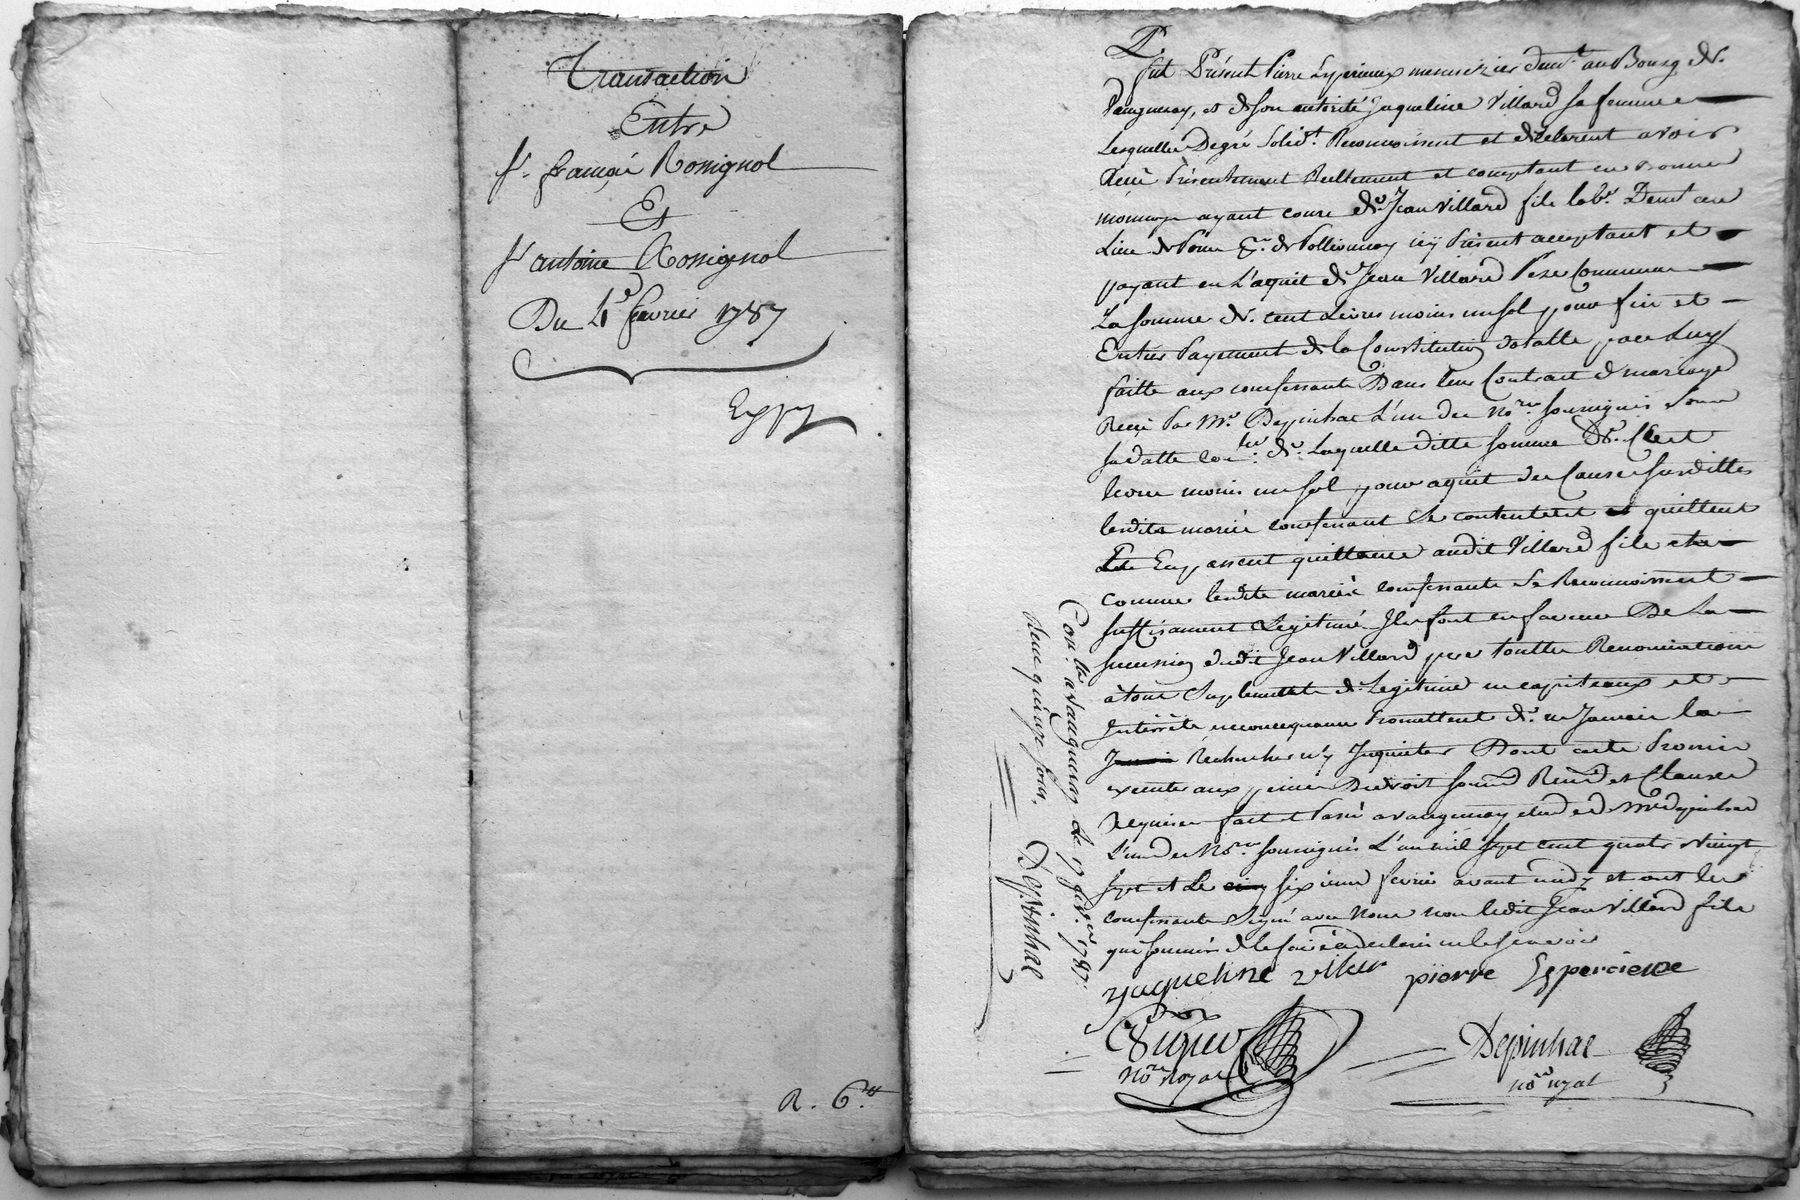 Transaction
Entre
Sr. françois Rossignol
Et
Sr antoine Rossignol
Du 4e fevrier 1787
Expp
R. 6 tt
fut Présent Pierre Esperieux menuizier demt. au Bourg de
Vaugneray, et de son autorité Jaqueline Villard sa femme
Lesquelles Degré Solidt. Reconnoissent et declarent avoir
Reçu Présentement Reellement et comptant en bonne
monnoye ayant cours de Jean Villard fils labr. Demt au
Lieu de Pre. de Pollionnay icy Présent acceptant et
payant en L'aquit de Jean Villard Pere Commun
La somme de cent Livres moins un sol pour fin et
Entier Payement de la Constitution dotalle par Luy
faitte aux confessants Dans leur Contrat de mariage
Reçu Par Me. Depinhac L'un des Nores. soussignés sous
sa datte de Laquelle ditte somme de Cent
livres moins un sol pour aquit des Causes susdittes
lesdits mariés confessant se contentent et quittent
Et En passent quittance audit Villard fils et
comme lesdits mariés confessants se Reconnoissent
suffisament Legitimé Ils font en faveur De La
succession dudit Jean Villard pere touttes Renonciations
à tous suplement de Legitime en capiteaux et
Intérêts Promettent de ne Jamais la
Rechercher ny Inquieter Dont acte Promis
executer aux peines De droit soumd Renond et Clauses
Requises fait et Passé a vaugneray etude de Me depinhac
L'un des Nores. soussignés L'an mil sept cent quatre vingt
sept et Le cinq sixieme fevrier avant midy et ont les
confessants Signé avec Nous non ledit Jean Villard fils
qui sommé de le faire a declaré ne le sçavoir
Jaqueline viller pierre Esperieux
Nore. Royal
Depinhac
nore. royal
Con. lé a Vaugneray Le 17 fev.er 1787.
Reçu quinze sous.
Depinhac